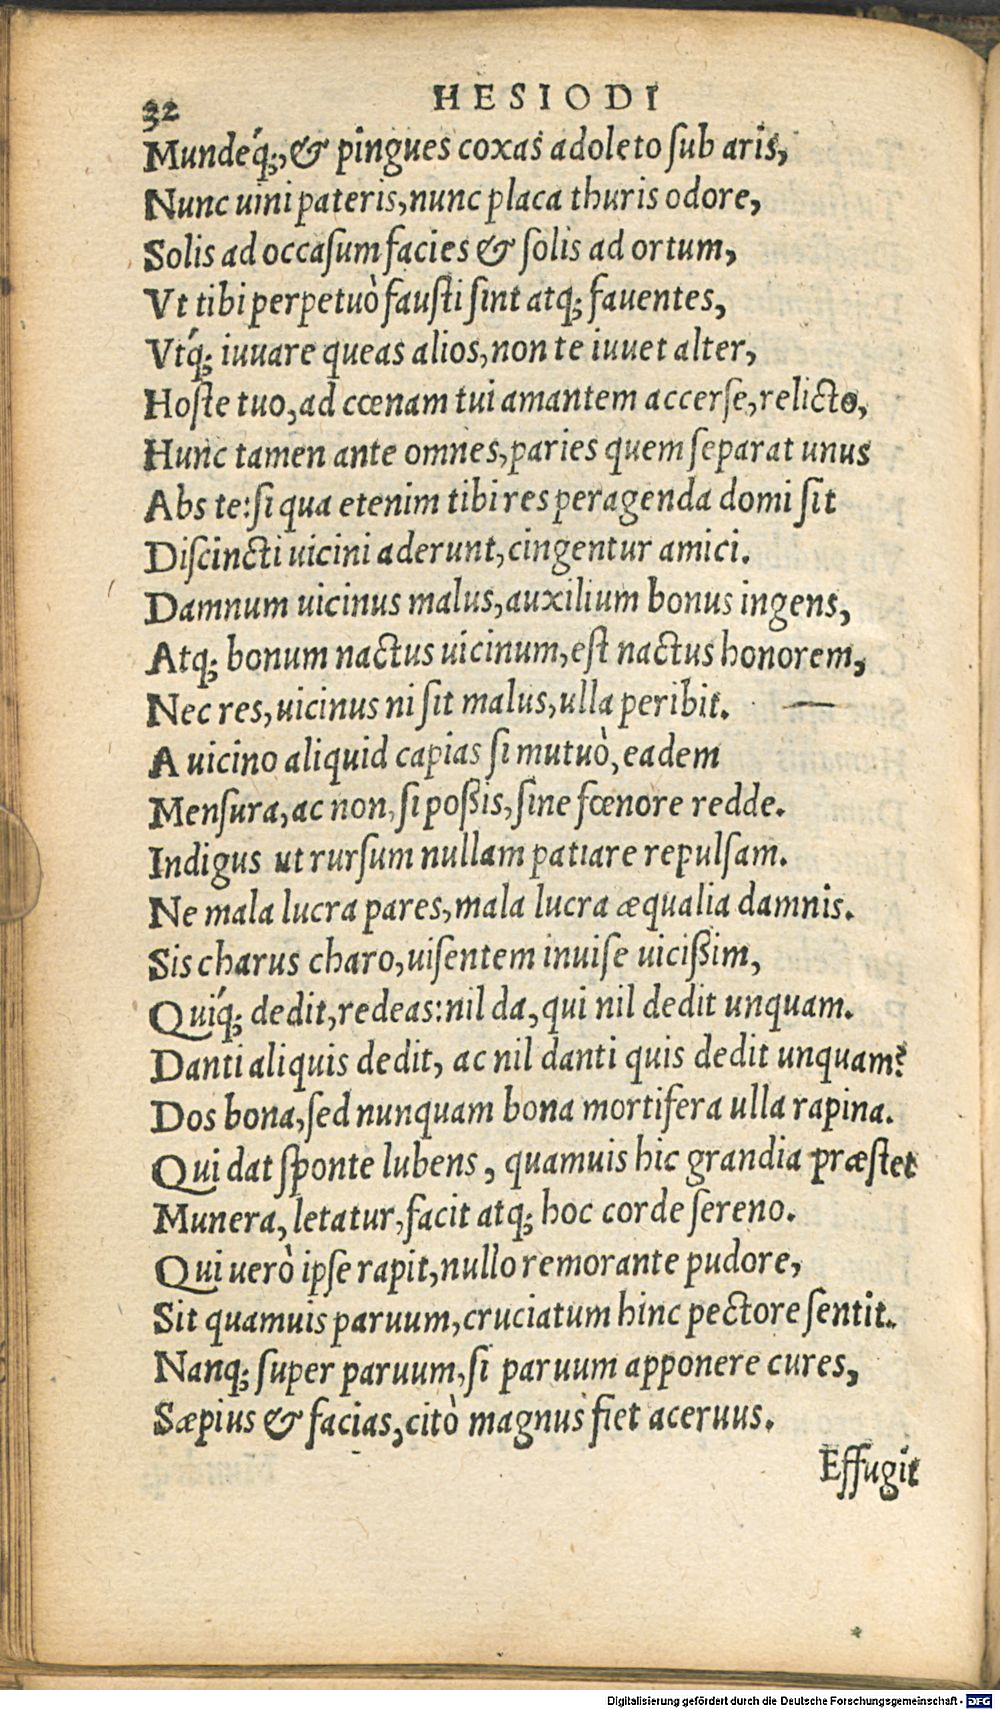 32
HESIODI
Mundéq́;, & pingues coxas adoleto ſub aris,
Nunc uini pateris, nunc placa thuris odore,
Solis ad occaſum facies & ſolis ad ortum,
Vt tibi perpetuò fauſti ſint atq; fauentes,
Vtq́; iuuare queas alios, non te iuuet alter,
Hoſte tuo, ad cœnam tui amantem accerſe, relicto,
Hunc tamen ante omnes, paries quem ſeparat unus
Abs te: ſi qua etenim tibi res peragenda domi ſit
Diſcincti uicini aderunt, cingentur amici.
Damnum uicinus malus, auxilium bonus ingens,
Atq; bonum nactus uicinum, eſt nactus honorem,
Nec res, uicinus ni ſit malus, ulla peribit.
A uicino aliquid capias ſi mutuò, eadem
Menſura, ac non, ſi poßis, ſine fœnore redde.
Indigus ut rurſum nullam patiare repulſam.
Ne mala lucra pares, mala lucra æqualia damnis.
Sis charus charo, uiſentem inuiſe uicißim,
Quiq́; dedit, redeas: nil da, qui nil dedit unquam.
Danti aliquis dedit, ac nil danti quis dedit unquam?
Dos bona, ſed nunquam bona mortifera ulla rapina.
Qui dat ſponte lubens, quamuis hic grandia præſtet
Munera, letatur, facit atq; hoc corde ſereno.
Qui uerò ipſe rapit, nullo remorante pudore,
Sit quamuis paruum, cruciatum hinc pectore ſentit.
Nanq; ſuper paruum, ſi paruum apponere cures,
Sæpius & facias, citò magnus fiet aceruus.
Effugit
Digitalisierung gefördert durch die Deutsche Forschungsgemeinschaft - DFG